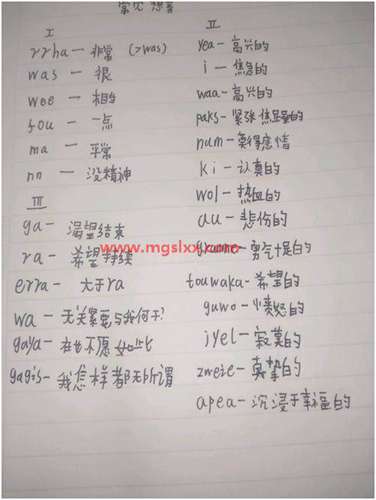 常见 想音
I
rrha — 非常 (>was)
was — 很
wee — 相当
fou — 一点
ma — 平常
nn — 没精神
III
ga — 渴望结束
ra — 希望持续
erra — 大于ra
wa — 无关紧要与我何干?
gaya — 再也不愿如此
gagis — 我怎样都无所谓
II
yea — 高兴的
i — 焦急的
waa — 高兴的
paks — 紧张焦虑的
num — 莫得感情
ki — 认真的
wol — 热血的
au — 悲伤的
www.mgslxx.com
勇气十足的
touwaka — 希望的
guwo — 愤怒的
iyel — 寂寞的
zweie — 真挚的
apea — 沉浸于幸福的